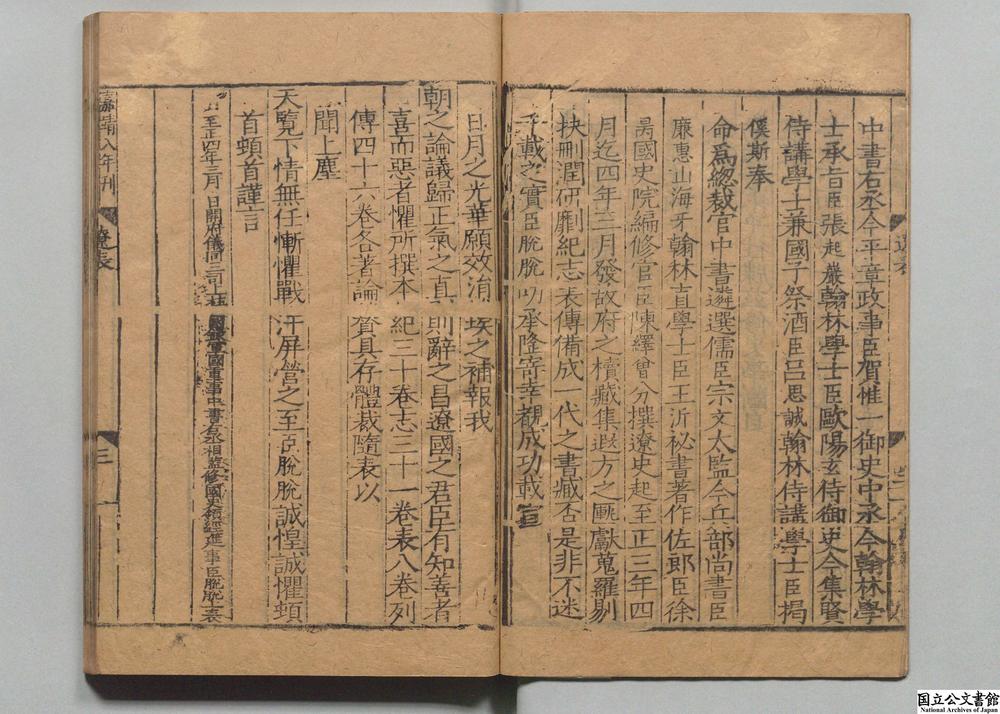 中書右丞今平章政事臣賀惟一御史中丞今翰林學
士承旨臣張起巖翰林學士臣歐陽玄侍御史今集賢
侍講學士兼國子祭酒臣呂思誠翰林侍講學士臣揭
傒斯奉
命爲總裁官中書遴選儒臣宗文太監今兵部尚書臣
廉惠山海牙翰林直學士臣王沂祕書著作佐郎臣徐
昺國史院編修官臣陳繹曾分撰遼史起至正三年四
月迄四年三月發故府之櫝藏集遐方之匭獻蒐羅剔
抉刪潤研劘紀志表傳備成一代之書臧否是非不迷
千載之實臣脫脫叨承隆寄幸覩成功載宣
日月之光華願效涓埃之補報我
朝之論議歸正氣之直則辭之昌遼國之君臣有知善者
喜而惡者懼所撰本紀三十卷志三十一卷表八卷列
傳四十六卷各著論贊具存體裁隨表以
聞上塵
天覽下情無任慚懼戰汗屏營之至臣脫脫誠惶誠懼頓
首頓首謹言
至正四年三月日開府儀同三司上柱國錄軍國重事中書右丞相監修國史領經筵事臣脫脫上表
嘉靖八年刊
遼表
三
國立公文書館
National Archives of Japan